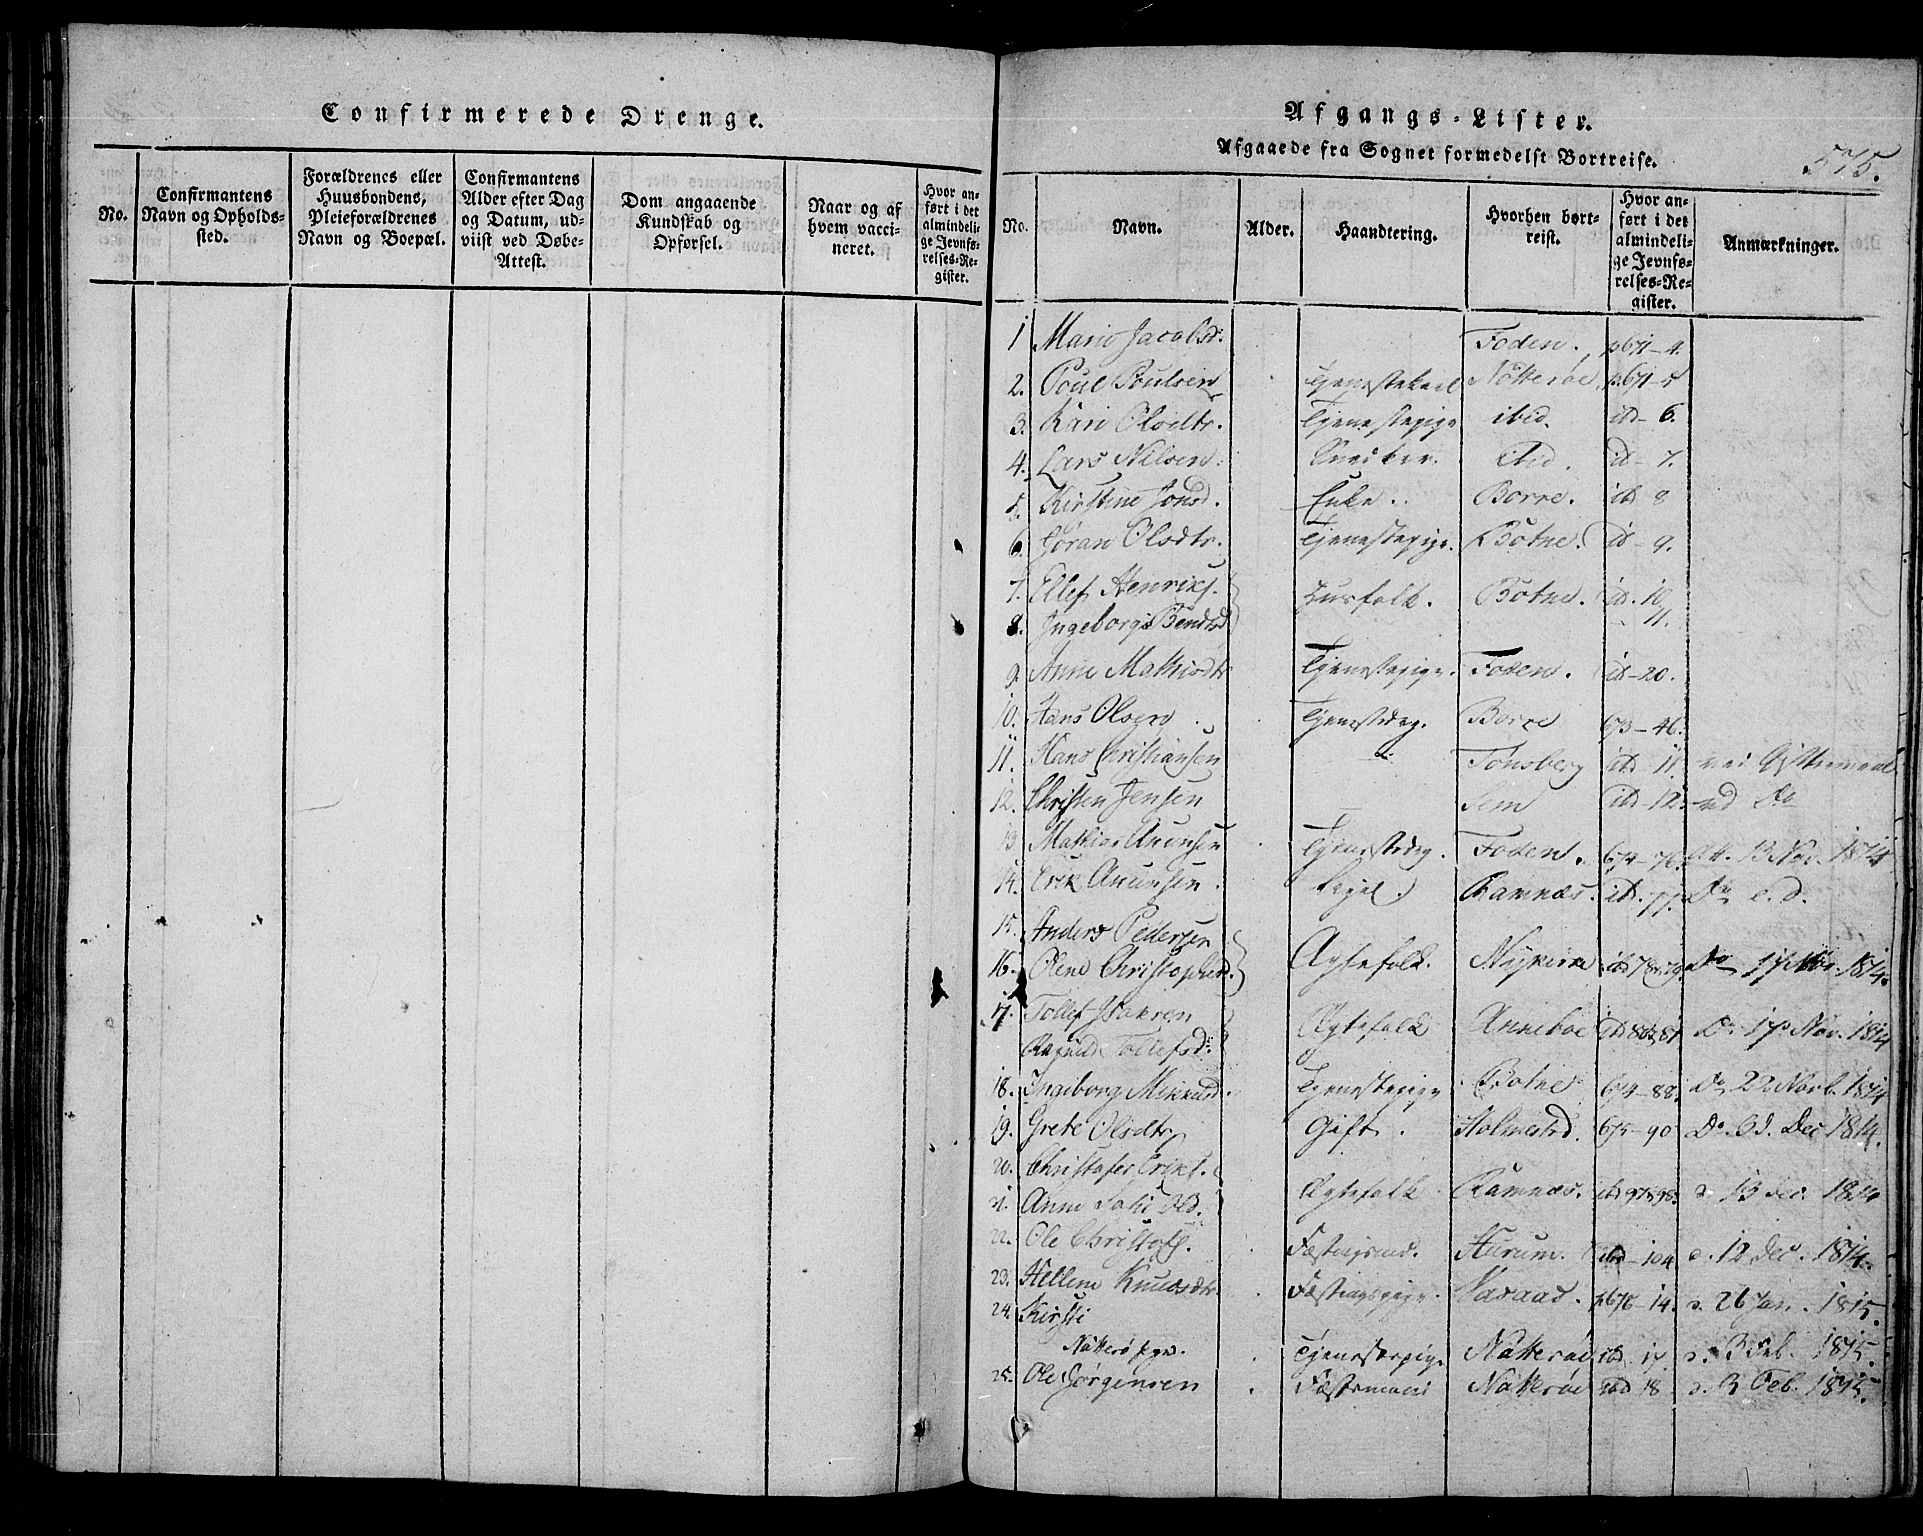 Confirmerede Drenge.
No.
Confirmantens
Navn og Opholds-
sted.
Forældrenes eller
Huusbondens,
Pleieforældrenes
Navn og Boepæl.
Confirmantens
Alder efter Dag
og Datum, ud-
viist ved Døbe-
Attest.
Dom angaaende
Kundskab og
Opførsel.
Naar og af
hvem vacci-
neret.
Hvor an-
ført i det
almindeli-
ge Jevnfø-
relses-Re-
gister.
Afgangs-Lister.
Afgaaede fra Sognet formedelst Bortreise.
575.
No.
Navn.
Alder.
Haandtering.
Hvorhen bort-
reist.
Hvor an-
ført i det
almindeli-
ge Jevnfø-
relses-Re-
gister.
Anmærkninger.
1 Marie Jacobsd: Foden. p671-4.
2. Poul Poulsen Tjenestekarl Nötteröe p.671-5
3. Kari Olsdtr. Tjenestepige ibid. ibd- 6.
4. Lars Nilsen. Snedker. ibid. id- 7.
5. Kirstine Jonsd. Enke. Borre. ibd 8
6. Jöran Olsdtr. Tjenestepige. Botne. id- 9.
7. Ellef Henriks. Huusfolk. Botne. id. 10
8. Ingeborg Bendtsd 11.
9. Anne Mathisdtr Tjenestepige. Foden. id-20.
10. Hans Olsen Tjenestedreng. Borre 673-46.
11. Hans Christiansen Tonsberg ibd-11. ved Giftermaal
12. Christen Jensen Sem ibd-12. ved Do
13. Mathias Anensen Tjenestedreng. Foden. 674-76. 13 Nov. 1814
14. Erik Anensen. Ramnæs. ibd. 77. Do e. d.
15. Anders Pedersen
16. Olene Christophersd. Ægtefolk. Nykirke ibd 78 & 79. Do 17 Nov. 1814.
17. Tollef Isaksen Ægtefolk Anneboe ibd 80 & 81 Do 17 Nov. 1814
Ragnild Tollefsd:
18. Ingeborg Mikkelsd. Tjenestepige Botne 674-88. Do 22 Novb. 1814
19. Grete Olsdtr Gift. Holmestrd. 675-90 Do 3d. Dec 1814.
20. Christofer Eriks.
21. Anne Sofie Old. Ægtefolk Ramnæs. ibd 97 & 98. d. 13 Dec. 1814
22. Ole Christofs. Fæstingsmd. Hurum. ibd-104 d. 12 Dec. 1814.
23. Hellene Knudsdtr. Fæstingspige. p676-14. d. 26 Jan. 1815.
24. Kirsti
Nötteröe Tjenestepige Nötteröe ibd 17 d. 3 Feb. 1815.
25. Ole Jörgensen Fæstemand Nötteröe ibd 18 d. 3 Feb. 1815.